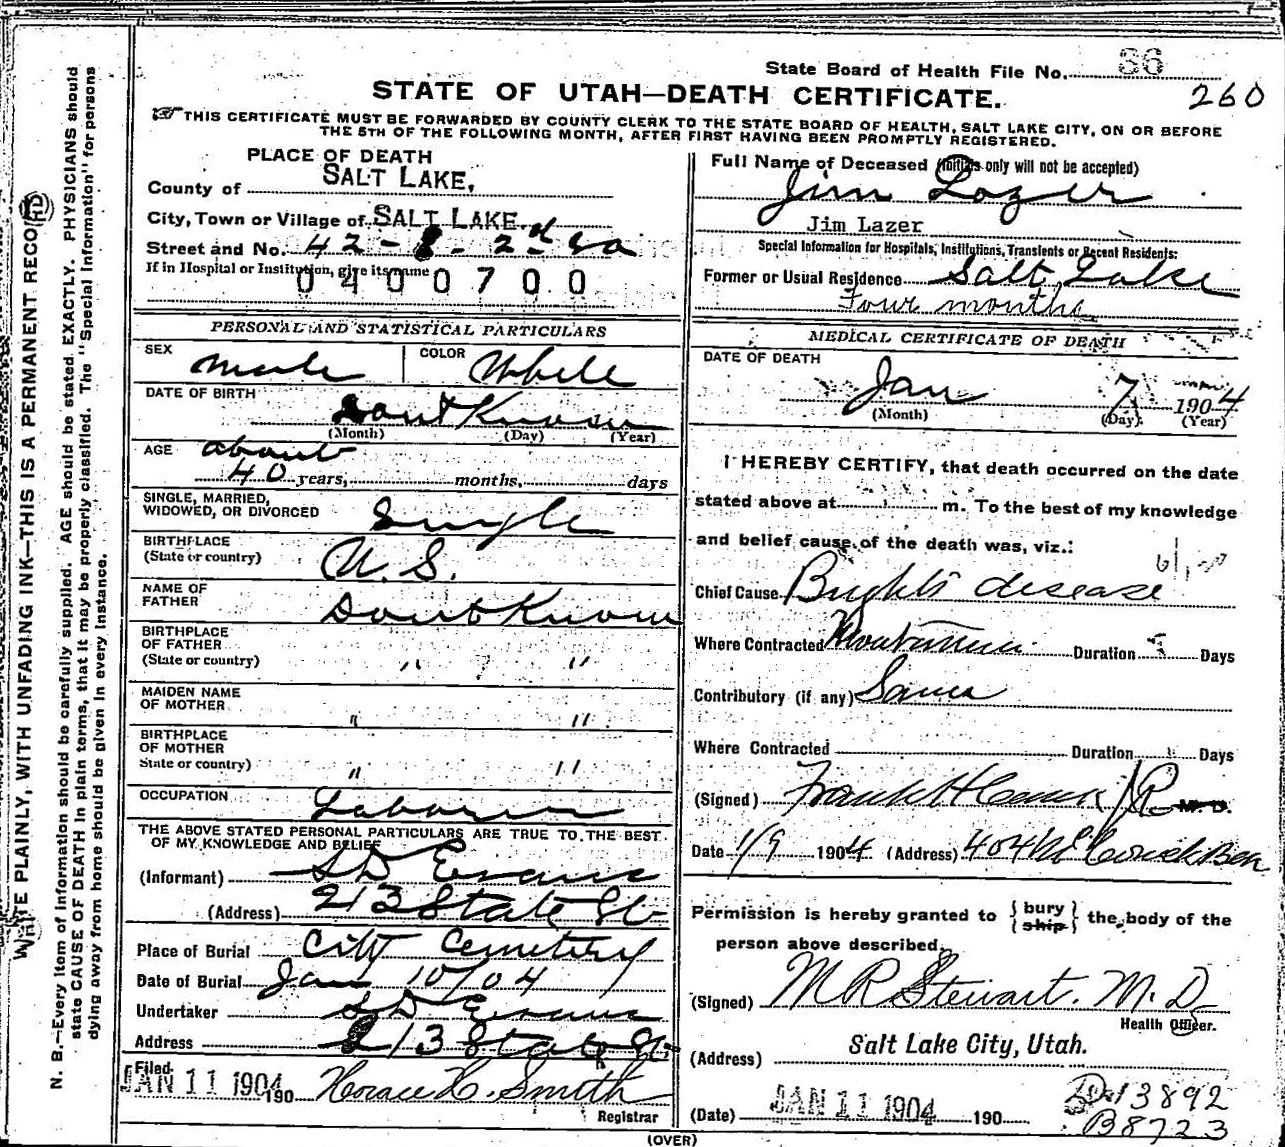 State Board of Health File No. 36
260
STATE OF UTAH—DEATH CERTIFICATE.
THIS CERTIFICATE MUST BE FORWARDED BY COUNTY CLERK TO THE STATE BOARD OF HEALTH, SALT LAKE CITY, ON OR BEFORE
THE 5TH OF THE FOLLOWING MONTH, AFTER FIRST HAVING BEEN PROMPTLY REGISTERED.
PLACE OF DEATH
County of SALT LAKE.
City, Town or Village of SALT LAKE.
Street and No. 42 - 2d So
If in Hospital or Institution, give its name
0400700
PERSONAL AND STATISTICAL PARTICULARS
SEX Male COLOR White
DATE OF BIRTH Dont Know
(Month) (Day) (Year)
AGE about
40 years, months, days
SINGLE, MARRIED,
WIDOWED, OR DIVORCED Single
BIRTHPLACE
(State or country) U. S.
NAME OF
FATHER Dont Know
BIRTHPLACE
OF FATHER
(State or country) " "
MAIDEN NAME
OF MOTHER " "
BIRTHPLACE
OF MOTHER
State or country) " "
OCCUPATION Laborer
THE ABOVE STATED PERSONAL PARTICULARS ARE TRUE TO THE BEST
OF MY KNOWLEDGE AND BELIEF
(Informant) S D Evans
(Address) 213 State St
Place of Burial City Cemetery
Date of Burial Jan 10/04
Undertaker S D Evans
Address 213 State St
Filed JAN 11 1904 190 Horace H. Smith
Registrar
Full Name of Deceased (Initials only will not be accepted)
Jim Lozer
Jim Lazer
Special Information for Hospitals, Institutions, Transients or Recent Residents:
Former or Usual Residence Salt Lake
Four months
MEDICAL CERTIFICATE OF DEATH
DATE OF DEATH
Jan 7 1904
(Month) (Day) (Year)
I HEREBY CERTIFY, that death occurred on the date
stated above at m. To the best of my knowledge
and belief cause of the death was, viz.:
Chief Cause Brights disease
Where Contracted Duration Days
Contributory (if any) Same
Where Contracted Duration Days
(Signed) Frank H M. D.
Date 1/9 1904 (Address) 404 McCornick
Permission is hereby granted to {bury ship} the body of the
person above described.
(Signed) M R Stewart. M. D
Health Officer.
(Address) Salt Lake City, Utah.
(Date) JAN 11 1904 190
D 13892
B8723
(OVER)
WRITE PLAINLY, WITH UNFADING INK—THIS IS A PERMANENT RECORD
N. B.—Every item of information should be carefully supplied. AGE should be stated EXACTLY. PHYSICIANS should
state CAUSE OF DEATH in plain terms, that it may be properly classified. The "Special Information" for persons
dying away from home should be given in every instance.